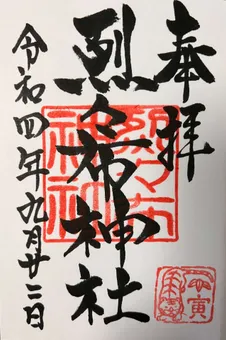 奉拝
烈々布神社
令和四年九月廿二日
壬寅